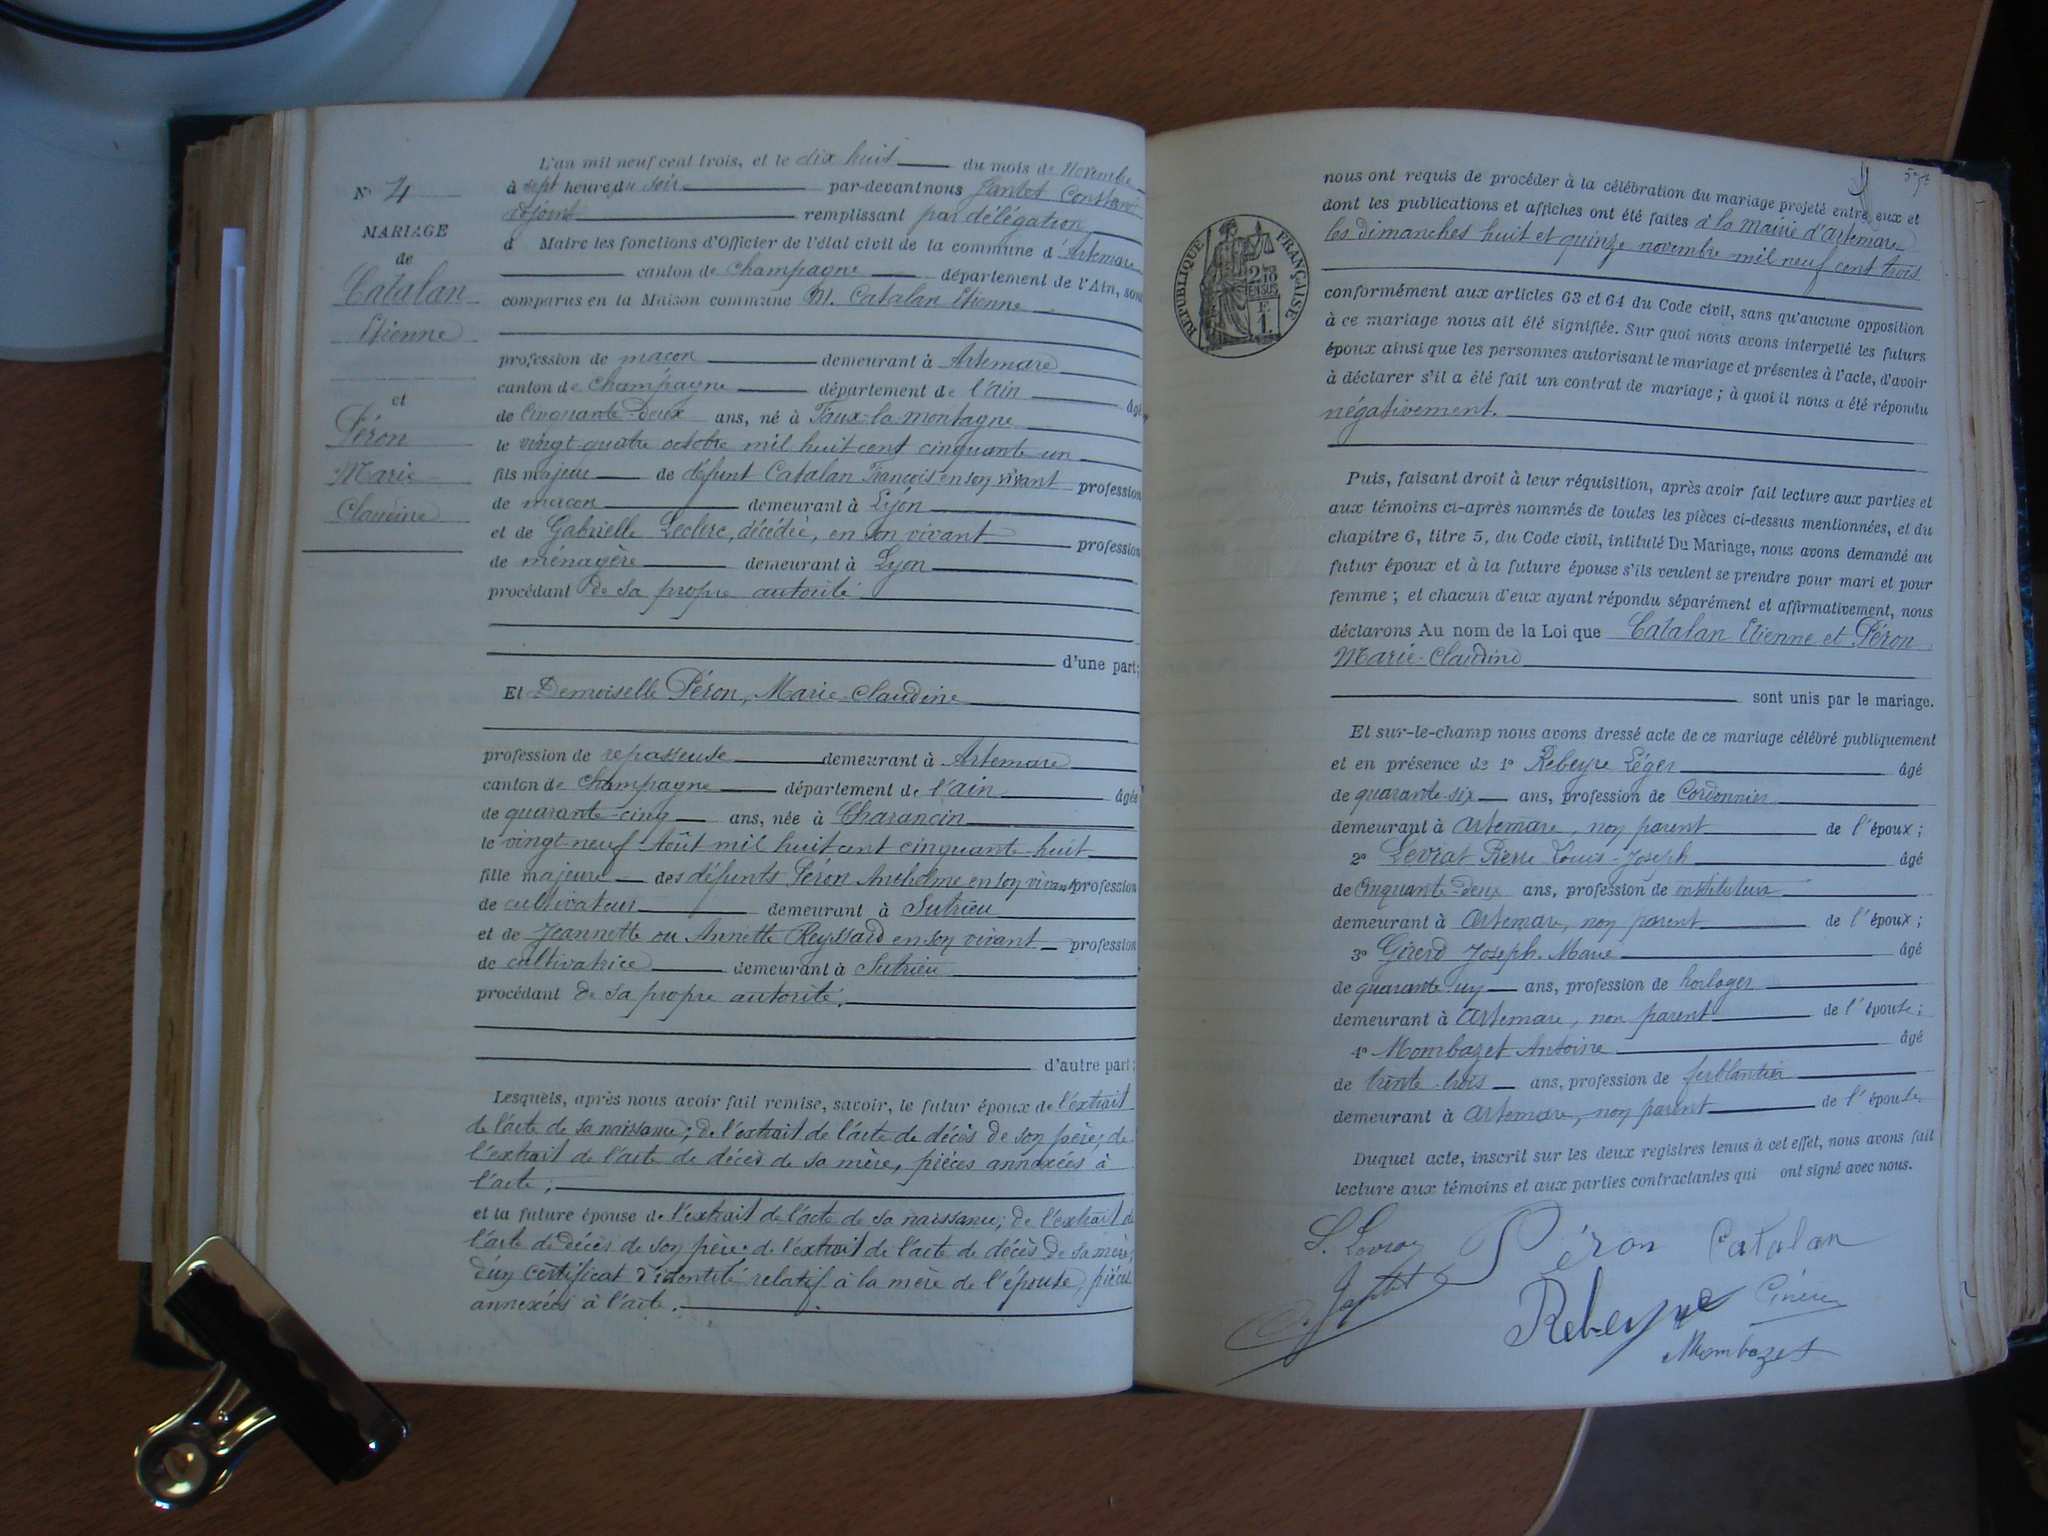 N° 4
MARIAGE
de
Catalan
Etienne
et
Péron
Marie
Claudine
L'an mil neuf cent trois, et le dix huit du mois de Novembre
à sept heures du soir par-devant nous Jantet
adjoint remplissant par délégation
d Maire les fonctions d'Officier de l'état civil de la commune d'Artemare
canton de Champagne département de l'Ain, sont
comparus en la Maison commune M. Catalan Etienne
profession de maçon demeurant à Artemare
canton de Champagne département de l'ain âgé
de Cinquante-Deux ans, né à Faux-la montagne
le vingt quatre octobre mil huit cent cinquante un
fils majeur de défunt Catalan François en son vivant profession
de maçon demeurant à Lyon
et de Gabrielle Leclerc, décédée, en son vivant profession
de ménagère demeurant à Lyon
procédant de sa propre autorité
d'une part;
Et Demoiselle Péron, Marie-Claudine
profession de repasseuse demeurant à Artemare
canton de Champagne département de l'ain âgée
de quarante-cinq ans, née à Charancin
le vingt-neuf Août mil huit cent cinquante-huit
fille majeure des défunts Péron Anthelme en son vivant profession
de cultivateur demeurant à Sutrieu
et de Jeannette ou Annette Reyssard en son vivant profession
de cultivatrice demeurant à Sutrieu
procédant de sa propre autorité.
d'autre part;
Lesquels, après nous avoir fait remise, savoir, le futur époux de l'extrait
de l'acte de sa naissance; de l'extrait de l'acte de décès de son père; de
l'extrait de l'acte de décès de sa mère, pièces annexées à
l'acte;
et la future épouse de l'extrait de l'acte de sa naissance; de l'extrait de
l'acte de décès de son père. de l'extrait de l'acte de décès de sa mère;
d'un certificat d'identité relatif à la mère de l'épouse, pièces
annexées à l'acte.
RÉPUBLIQUE FRANÇAISE
2/10
EN SUS
F.
1.
nous ont requis de procéder à la célébration du mariage projeté entre eux et
dont les publications et affiches ont été faites à la mairie d'Artemare
les dimanches huit et quinze novembre mil neuf cent trois
conformément aux articles 63 et 64 du Code civil, sans qu'aucune opposition
à ce mariage nous ait été signifiée. Sur quoi nous avons interpellé les futurs
époux ainsi que les personnes autorisant le mariage et présentes à l'acte, d'avoir
à déclarer s'il a été fait un contrat de mariage; à quoi il nous a été répondu
négativement.
Puis, faisant droit à leur réquisition, après avoir fait lecture aux parties et
aux témoins ci-après nommés de toutes les pièces ci-dessus mentionnées, et du
chapitre 6, titre 5, du Code civil, intitulé Du Mariage, nous avons demandé au
futur époux et à la future épouse s'ils veulent se prendre pour mari et pour
femme; et chacun d'eux ayant répondu séparément et affirmativement, nous
déclarons Au nom de la Loi que Catalan Etienne et Péron
Marie-Claudine
sont unis par le mariage.
Et sur-le-champ nous avons dressé acte de ce mariage célébré publiquement
et en présence de 1° Rebeyre Léger âgé
de quarante-six ans, profession de Cordonnier
demeurant à Artemare, non parent de l'époux;
2° Levrat Pierre Louis-Joseph âgé
de Cinquante-Deux ans, profession de instituteur
demeurant à Artemare, non parent de l'époux;
3° Girerd Joseph-Marie âgé
de quarante-un ans, profession de horloger
demeurant à Artemare, non parent de l'épouse;
4° Mombazet Antoine âgé
de trente-trois ans, profession de ferblantier
demeurant à Artemare, non parent de l'épouse
Duquel acte, inscrit sur les deux registres tenus à cet effet, nous avons fait
lecture aux témoins et aux parties contractantes qui ont signé avec nous.
L. Levrat Péron Catalan
Jantet Rebeyre
Mombazet